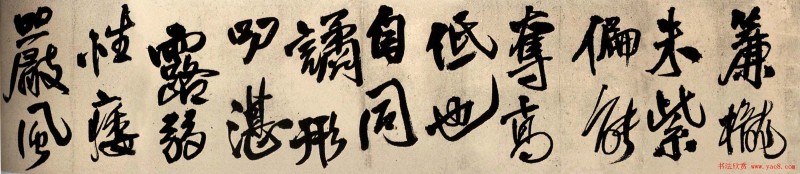 簾櫳
朱紫
偏能
奪高
低也
自同
譎形
叨湛
露弱
性痿
嚴風
书法欣赏 www.yac8.com